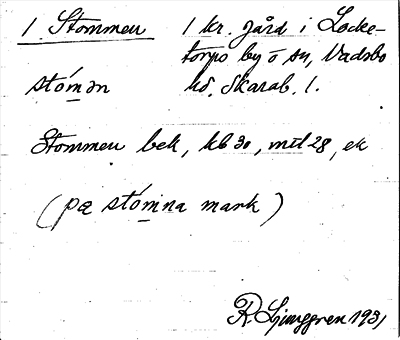 1 Stommen 1 kr. gård i Locke-
torps by o sn, Vadsbo
stómən hd. Skarab. l.
Stommen bek, kb 30, mtl 28, ek
(pæ stómna mark)
R. Ljunggren 1931